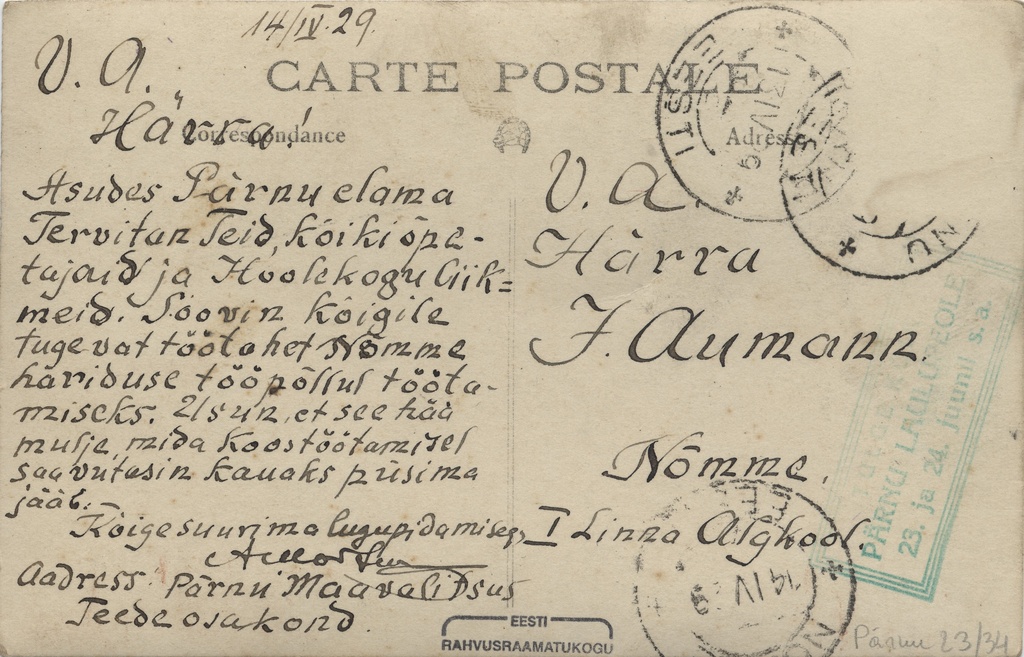 14/IV.29.
CARTE POSTALE
Correspondance
Adresse
V. A.
Härra!
Asudes Pärnu elama
Tervitan Teid, kõiki õpe-
tajaid ja Hoolekogu liik=
meid. Soovin kõigile
tugevat töötahet Nõmme
hariduse tööpõllul tööta-
miseks. Usun, et see hää
mulje, mida koostöötamisel
saavutasin kauaks püsima
jääb.
Kõige suurima lugupidamisega
Aadress: Pärnu Maavalitsus
Teedeosakond.
V. A.
Härra
J. Aumann.
Nõmme,
I Linna Algkool.
EESTI
14 IV
PÄRNU LAULUPEOLE
23. ja 24. juunil s. a.
EESTI
RAHVUSRAAMATUKOGU
Pärnu 23/34